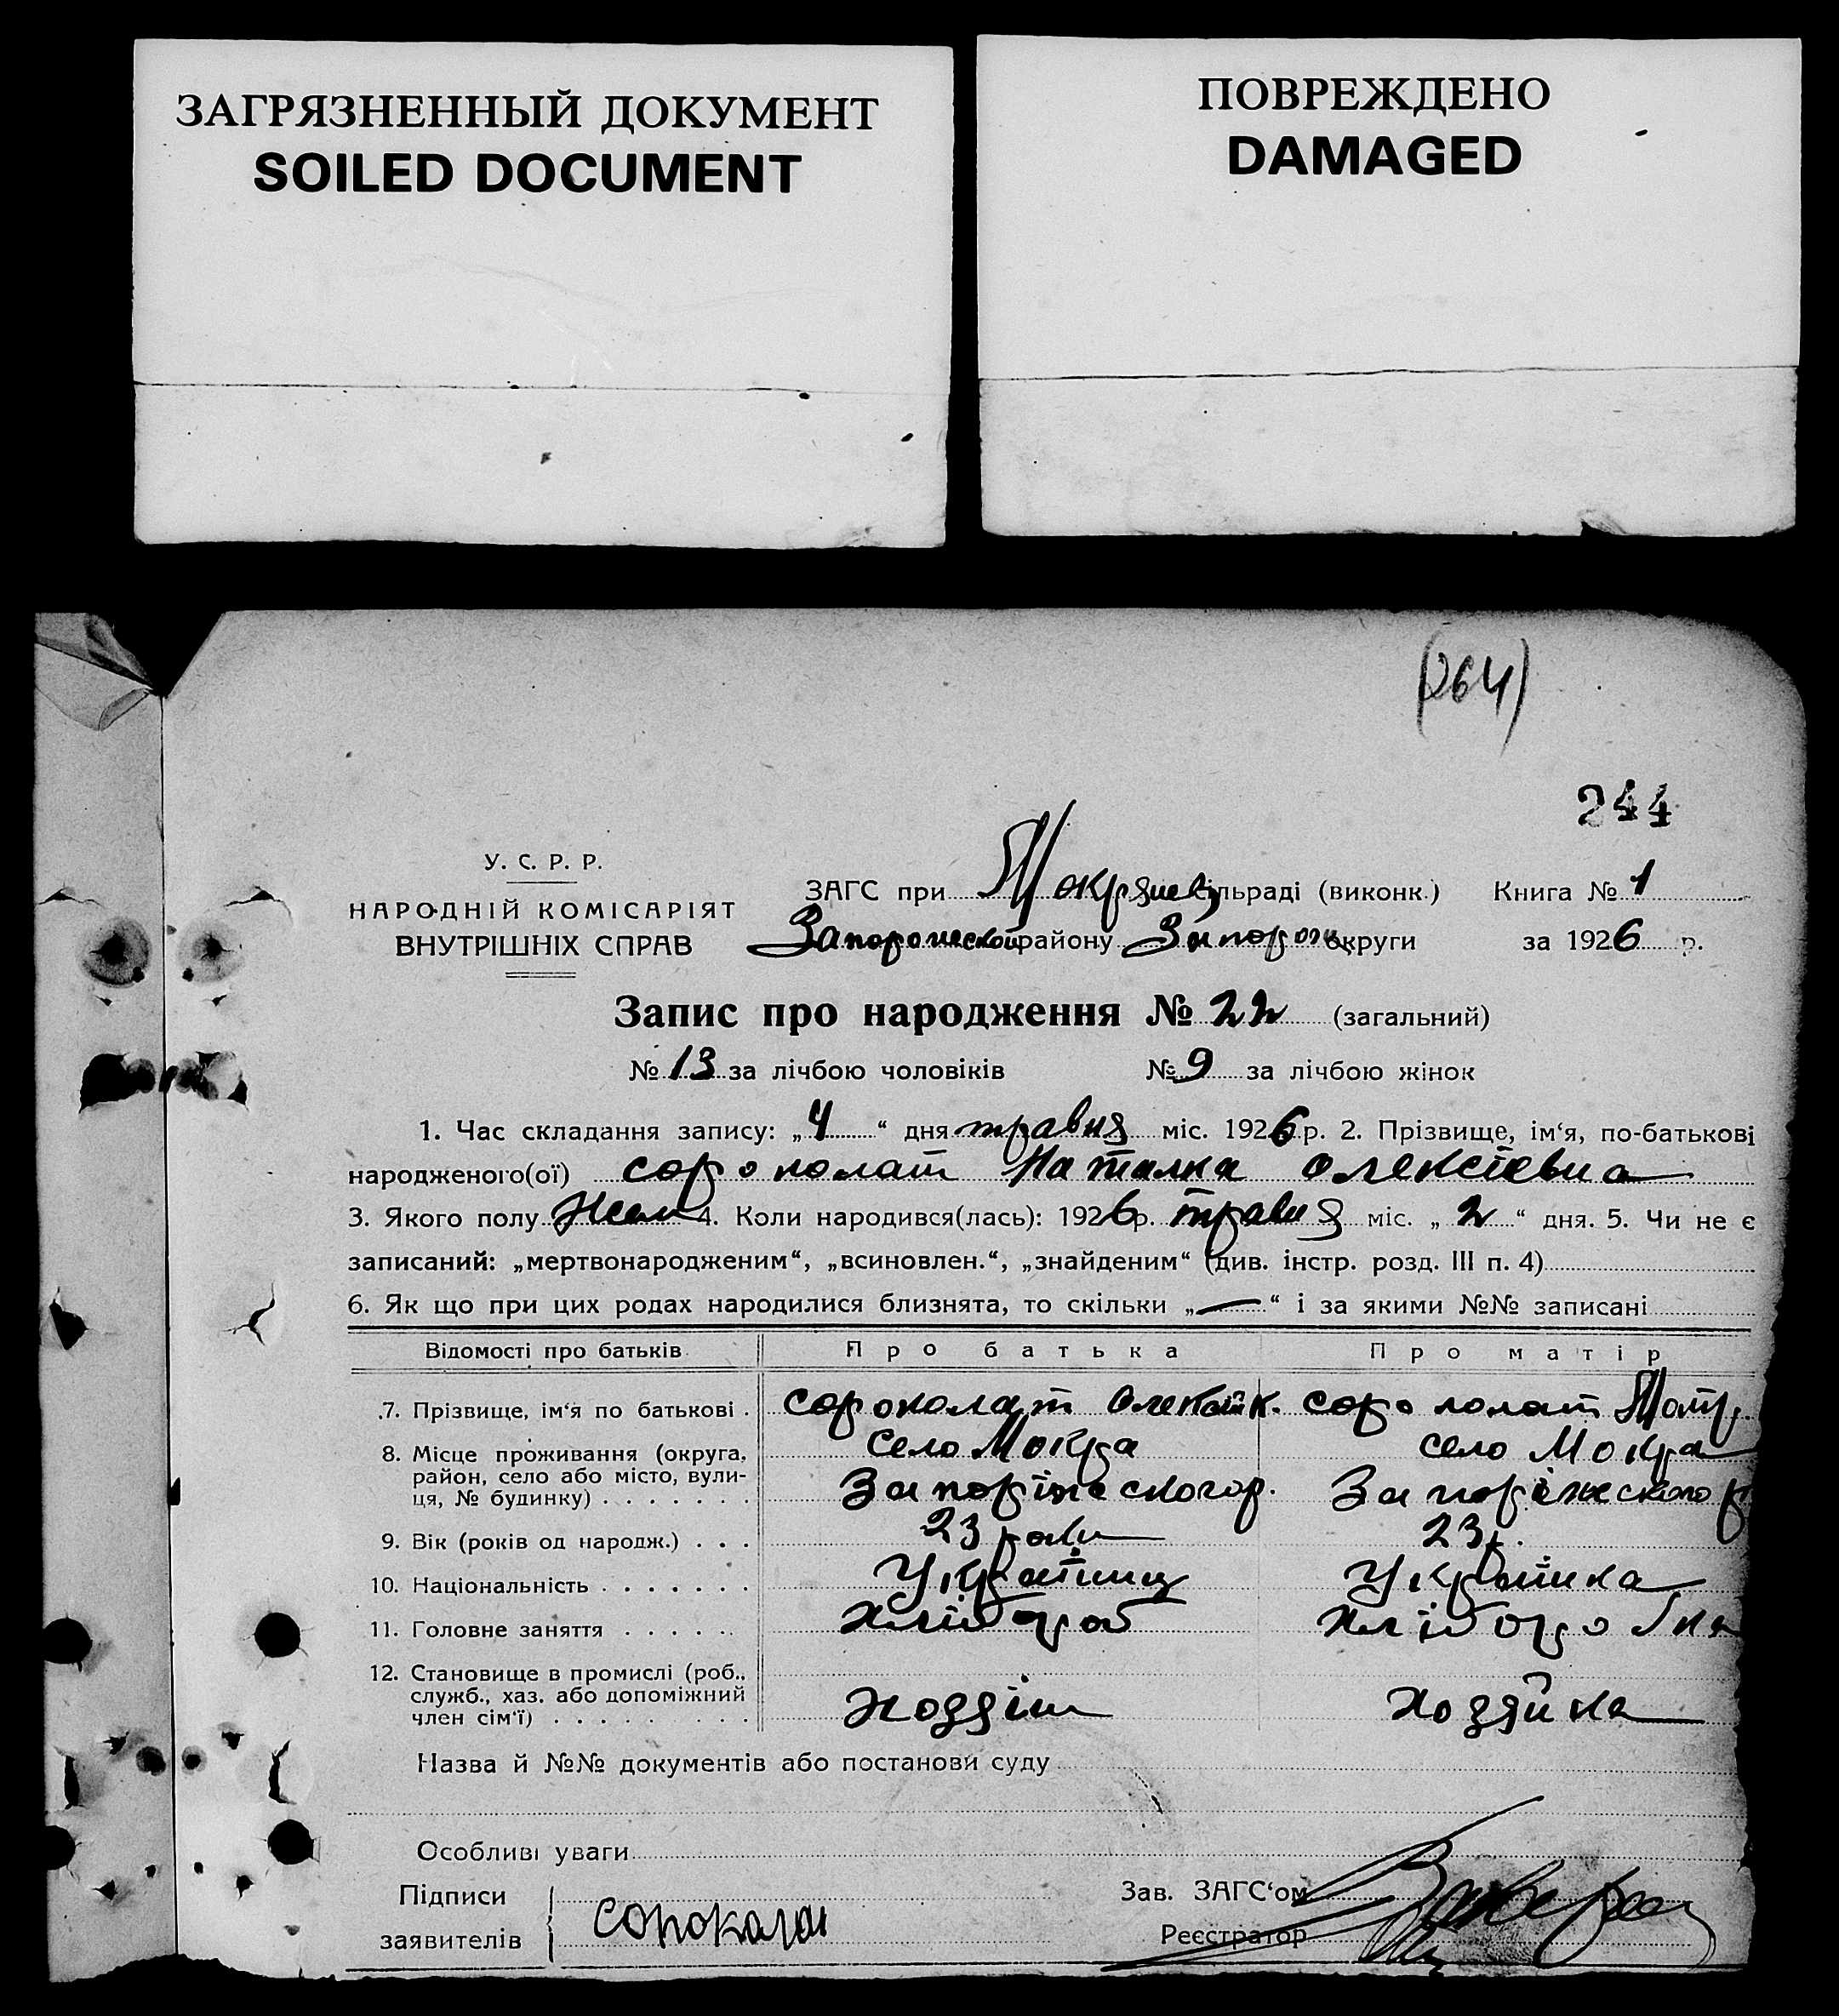 ЗАГРЯЗНЕННЫЙ ДОКУМЕНТ
SOILED DOCUMENT
ПОВРЕЖДЕНО
DAMAGED
(264)
244
У. С. Р. Р.
НАРОДНІЙ КОМІСАРІЯТ
ВНУТРІШНІХ СПРАВ
ЗАГС при Мокрянск сільраді (виконк.) Книга № 1
району округи за 1926 р.
Запис про народження № 22 (загальний)
№ 13 за лічбою чоловіків № 9 за лічбою жінок
1. Час складання запису: „4“ дня травня міс. 1926 р. 2. Прізвище, ім‘я, по-батькові
народженого(ої) сороколат Наталка Олексіевна
3. Якого полу Жен 4. Коли народився(лась): 1926 р. травня міс. „2“ дня. 5. Чи не є
записаний: „мертвонародженим“, „всиновлен.“, „знайденим“ (див. інстр. розд. III п. 4)
6. Як що при цих родах народилися близнята, то скільки „—“ і за якими №№ записані
Відомості про батьків Про батька Про матір
7. Прізвище, ім‘я по батькові . сороколат Олексій к. сороколат Мотр.
8. Місце проживання (округа, село Мокра село Мокра
район, село або місто, вули-
ця, № будинку) . . . . . . . Запоріжского р. Запоріжского р
9. Вік (років од народж.) . . . 23 роки 23 р.
10. Національність . . . . . . . Українец Українка
11. Головне заняття . . . . . . Хлібороб Хліборобка
12. Становище в промислі (роб.,
служб., хаз. або допоміжний
член сім‘ї) . . . . . . . . Хозяін Хозяйка
Назва й №№ документів або постанови суду
Особливі уваги
Підписи
заявителів
Сорокалат
Зав. ЗАГС‘ом
Реєстратор